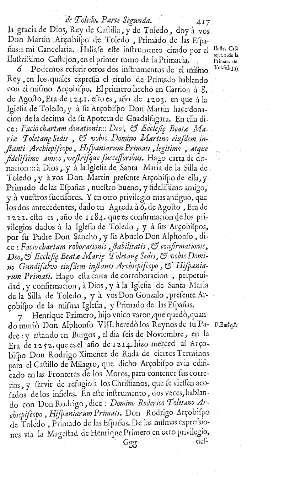 de Toledo. Parte Segunda. 417
la gracia de Dios, Rey de Castilla, y de Toledo, doy à vos
Don Martin Arçobispo de Toledo, Primado de las Espa-
ñas mi Cancelaria. Hallase este instrumento citado por el
Ilustrissimo Castejon, en el primer tomo de la Primacia.
6 Podemos referir otros dos instrumentos de el mismo
Rey, en los quales expressa el titulo de Primado hablando
con el mismo Arçobispo. El primero hecho en Carrion à 8.
de Agosto, Era de 1241. esto es, año de 1203. en que à la
Iglesia de Toledo, y à su Arçobispo Don Martin haze dona-
cion de la dezima de su Apoteca de Guadalfagira. En ella di-
ce: Facio chartam donationis:: Deo, & Ecclesiæ Beatæ Ma-
riæ Toletanæ Sedis, & vobis Domino Martino eiusdem in-
stanti Archiepiscopo, Hispaniarum Primati, legitimo, atque
fidelissimo amico, vestrisque successoribus. Hago carta de do-
nacion:: à Dios, y à la Iglesia de Santa Maria de la Silla de
Toledo, y à vos Don Martin presente Arçobispo de ella, y
Primado de las Españas, nuestro bueno, y fidelissimo amigo,
y à vuestros successores. Y en otro privilegio mas antiguo, que
los dos antecedentes, dado en Agreda à 6. de Agosto, Era de
1222. esto es, año de 1184. que es confirmacion de los pri-
vilegios dados à la Iglesia de Toledo, y à sus Arçobispos,
por su Padre Don Sancho, y su Abuelo Don Alphonso, di-
ce: Facio chartam roborationis, stabilitatis, & confirmationis,
Deo, & Ecclesiæ Beatæ Mariæ Toletanæ Sedis, & vobis Domi-
no Gundisalvo eiusdem instanti Archiepiscopo, & Hispania-
rum Primati. Hago esta carta de corroboracion, perpetui-
dad, y confirmacion, à Dios, y à la Iglesia de Santa Maria
de la Silla de Toledo, y à vos Don Gonzalo, presente Ar-
çobispo de la misma Iglesia, y Primado de las Españas.
7 Henrique Primero, hijo unico varon, que quedò, quan-
do muriò Don Alphonso VIII. heredò los Reynos de su Pa-
dre: y estando en Burgos, el dia seis de Noviembre, en la
Era de 1252. que es el año de 1214. hizo merced al Arço-
bispo Don Rodrigo Ximenez de Rada de ciertos Terminos
para el Castillo de Milagro, que dicho Arçobispo avia edifi-
cado en las Fronteras de los Moros, para contener sus corre-
rias, y servir de refugio à los Christianos, que se viessen aco-
sados de los infieles. En este instrumento, dos vezes, hablan-
do con Don Rodrigo, dice: Domino Roderico Toletano Ar-
chiepiscopo, Hispaniarum Primati. Don Rodrigo Arçobispo
de Toledo, Primado de las Españas. De las mismas expressio-
nes usa la Magestad de Henrique Primero en otro privilegio,
Ggg